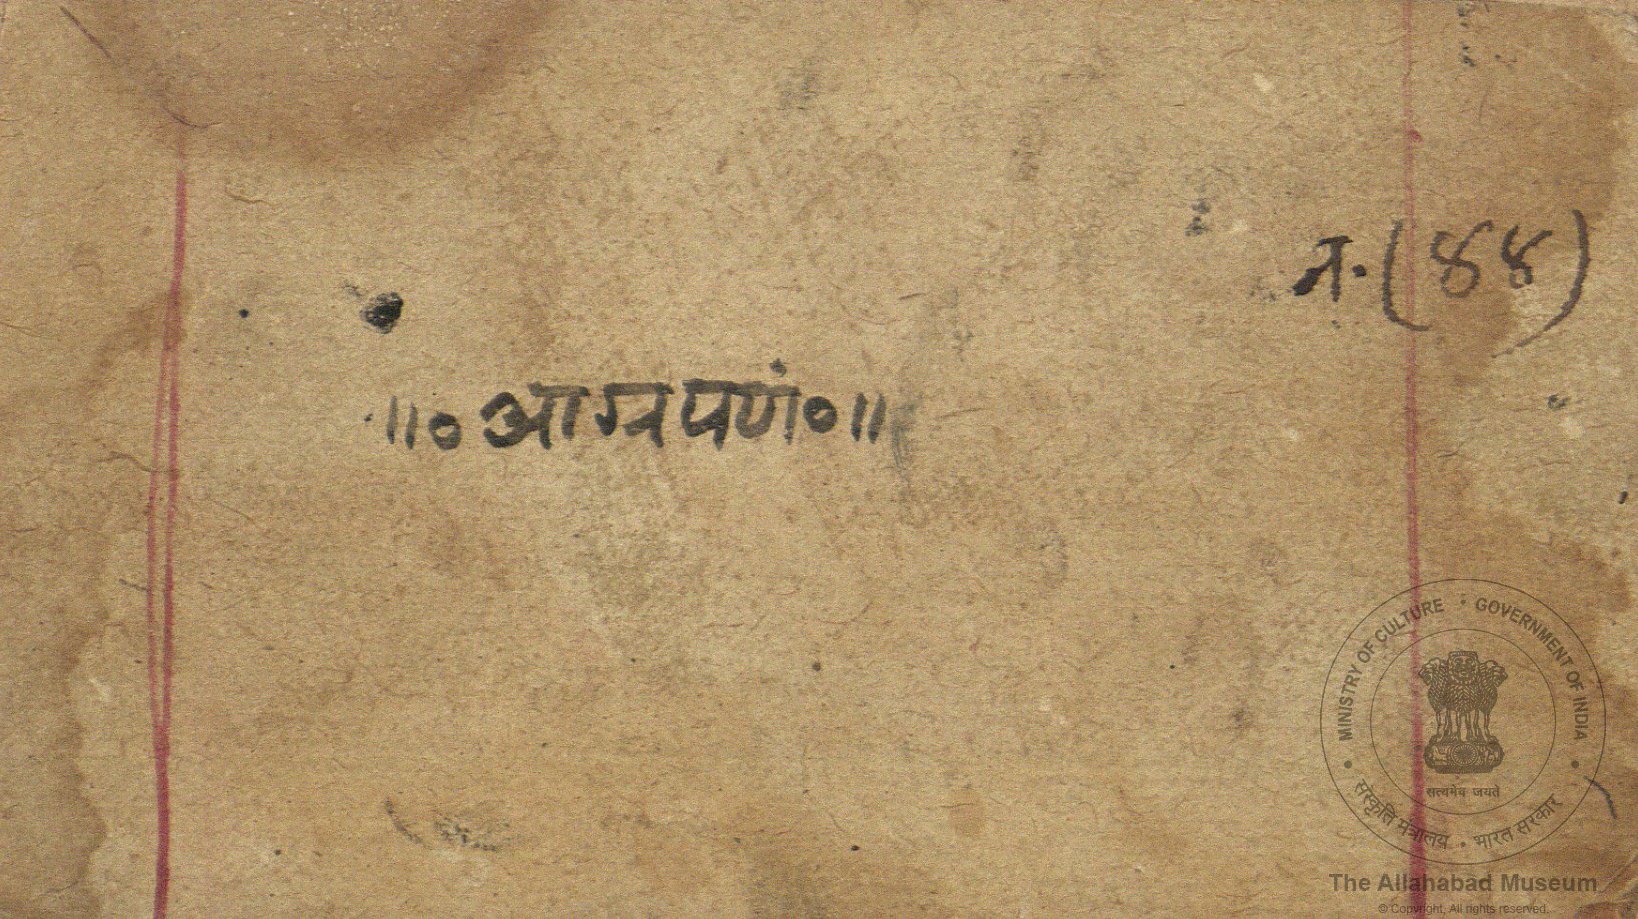 न. (४४)
॥० आग्रयणं० ॥
MINISTRY OF CULTURE • GOVERNMENT OF INDIA
सत्यमेव जयते
संस्कृति मंत्रालय • भारत सरकार
The Allahabad Museum
© Copyright, All rights reserved.